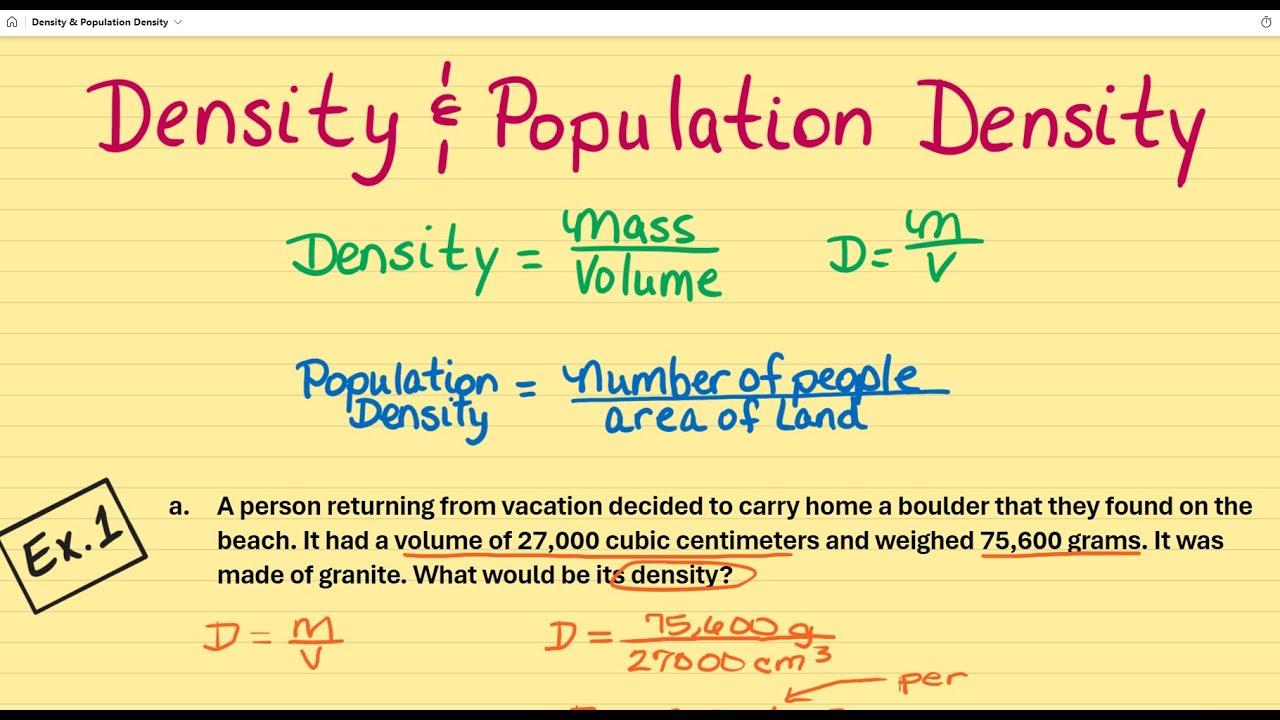 Density & Population Density
Density & Population Density
Density = Mass / Volume D = M / V
Population Density = Number of people / area of Land
Ex. 1
a. A person returning from vacation decided to carry home a boulder that they found on the
beach. It had a volume of 27,000 cubic centimeters and weighed 75,600 grams. It was
made of granite. What would be its density?
D = M / V D = 75,600 g / 27000 cm³
per